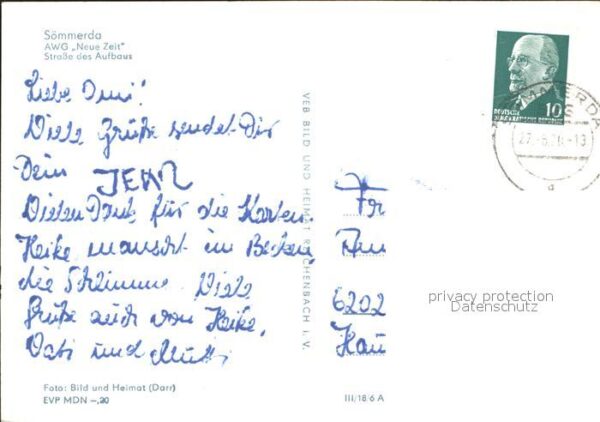 Sömmerda
AWG „Neue Zeit"
Straße des Aufbaus
Liebe Omi!
Viele Grüße sendet Dir
Dein JENZ
Vielen Dank für die Karten.
Heike manscht im Becken,
die Schlimme. Viele
Grüße auch von Heike,
Vati und Mutti
Foto: Bild und Heimat (Darr)
EVP MDN –,20
VEB BILD UND HEIMAT REICHENBACH i. V.
III/18/6 A
10
DEUTSCHE
DEMOKRATISCHE REPUBLIK
Fr
6202
Hau
privacy protection
Datenschutz